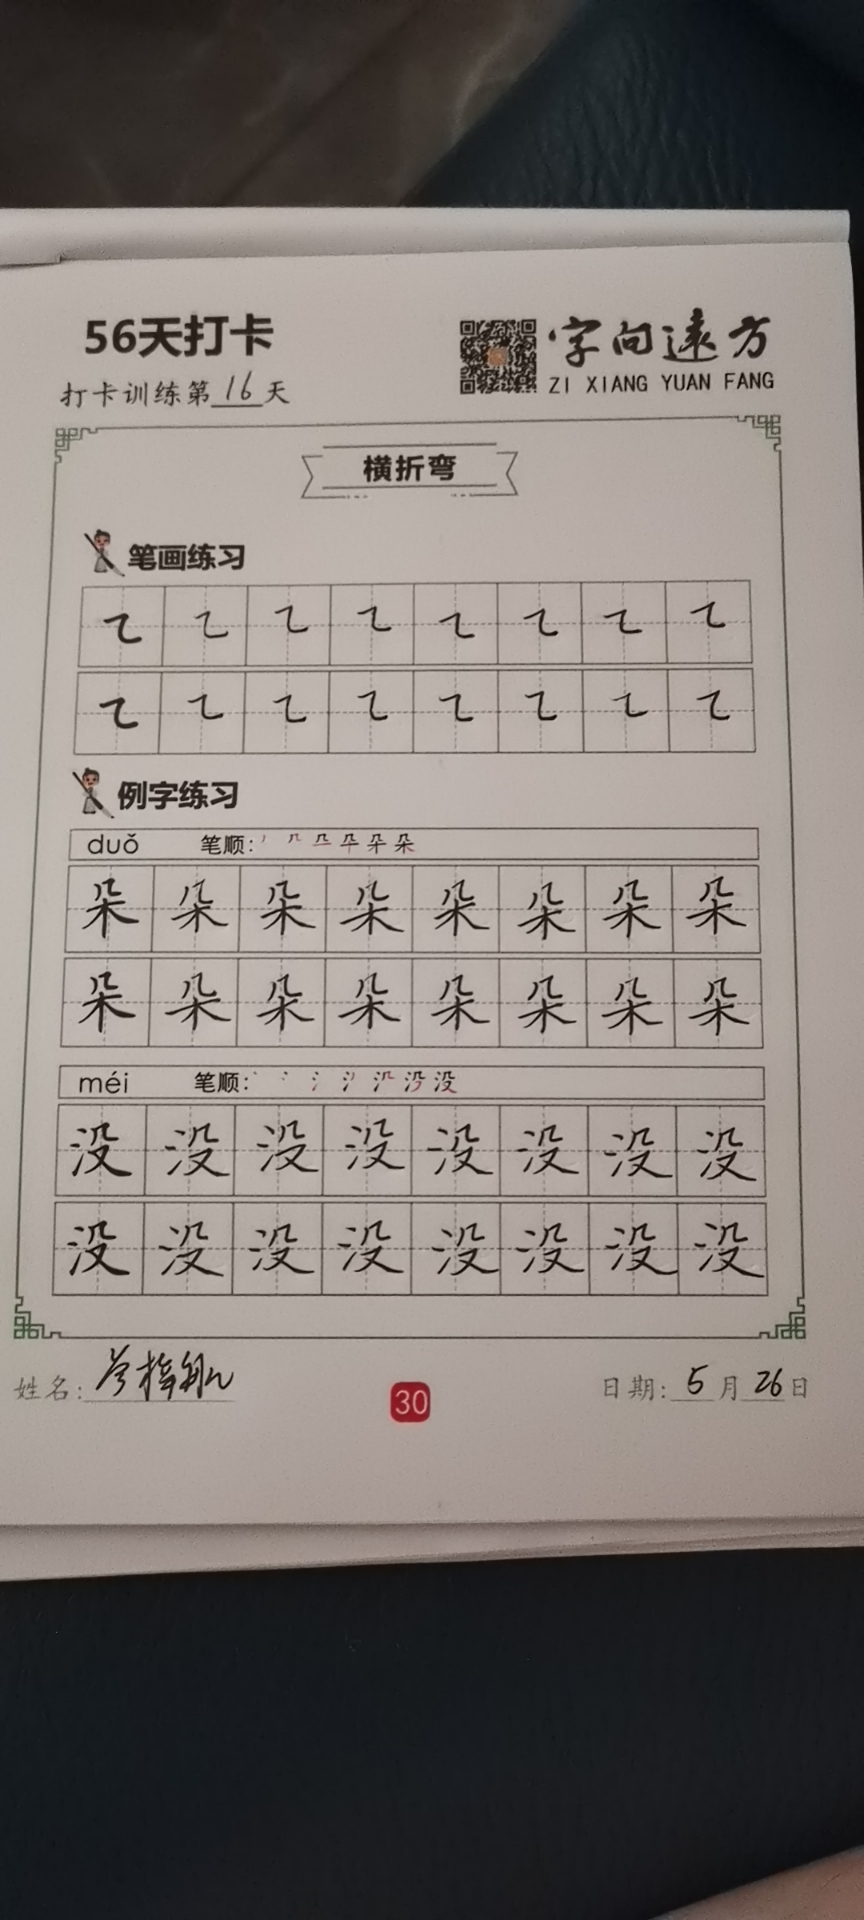 56天打卡
字向远方
打卡训练第16天
ZI XIANG YUAN FANG
横折弯
笔画练习
㇍ ㇍ ㇍ ㇍ ㇍ ㇍ ㇍ ㇍
㇍ ㇍ ㇍ ㇍ ㇍ ㇍ ㇍ ㇍
例字练习
duǒ 笔顺:
朵 朵 朵 朵 朵 朵 朵 朵
朵 朵 朵 朵 朵 朵 朵 朵
méi 笔顺:
没 没 没 没 没 没 没 没
没 没 没 没 没 没 没 没
姓名:
30
日期: 5月26日